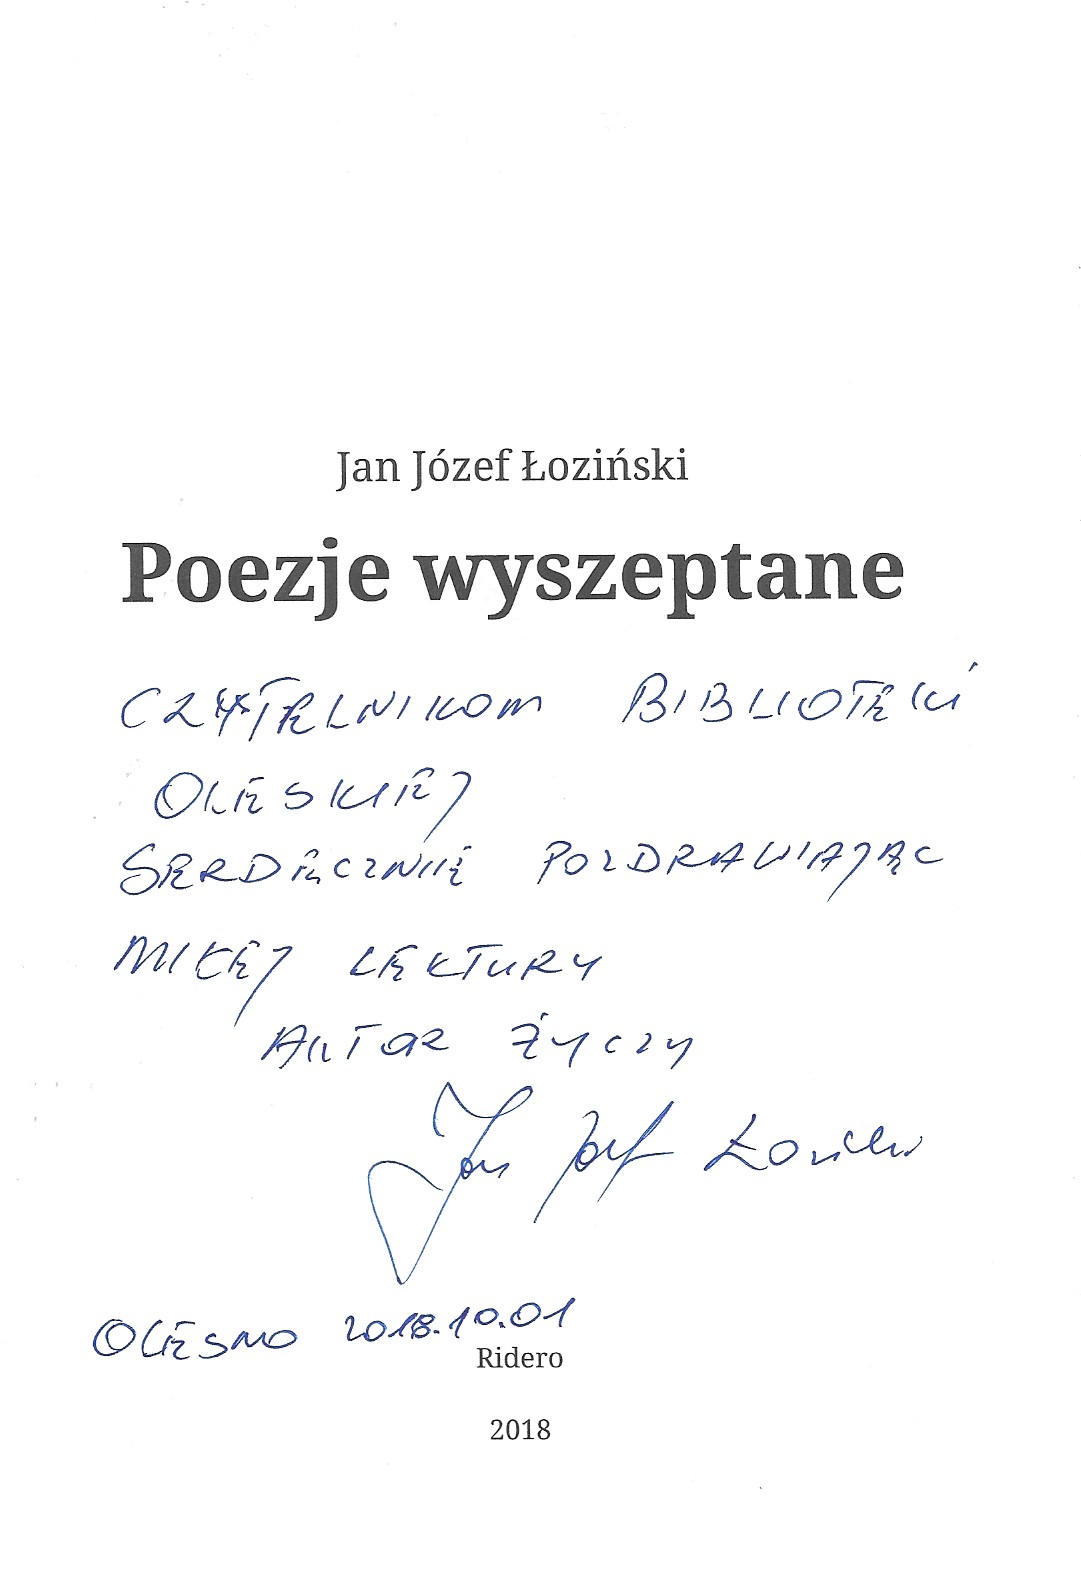 Jan Józef Łoziński
Poezje wyszeptane
CZYTELNIKOM BIBLIOTEKI
OLESKIEJ
SERDECZNIE POZDRAWIAJĄC
MIŁEJ LEKTURY
AUTOR ŻYCZY
Jan Józef Łoziński
OLESNO 2018.10.01
Ridero
2018